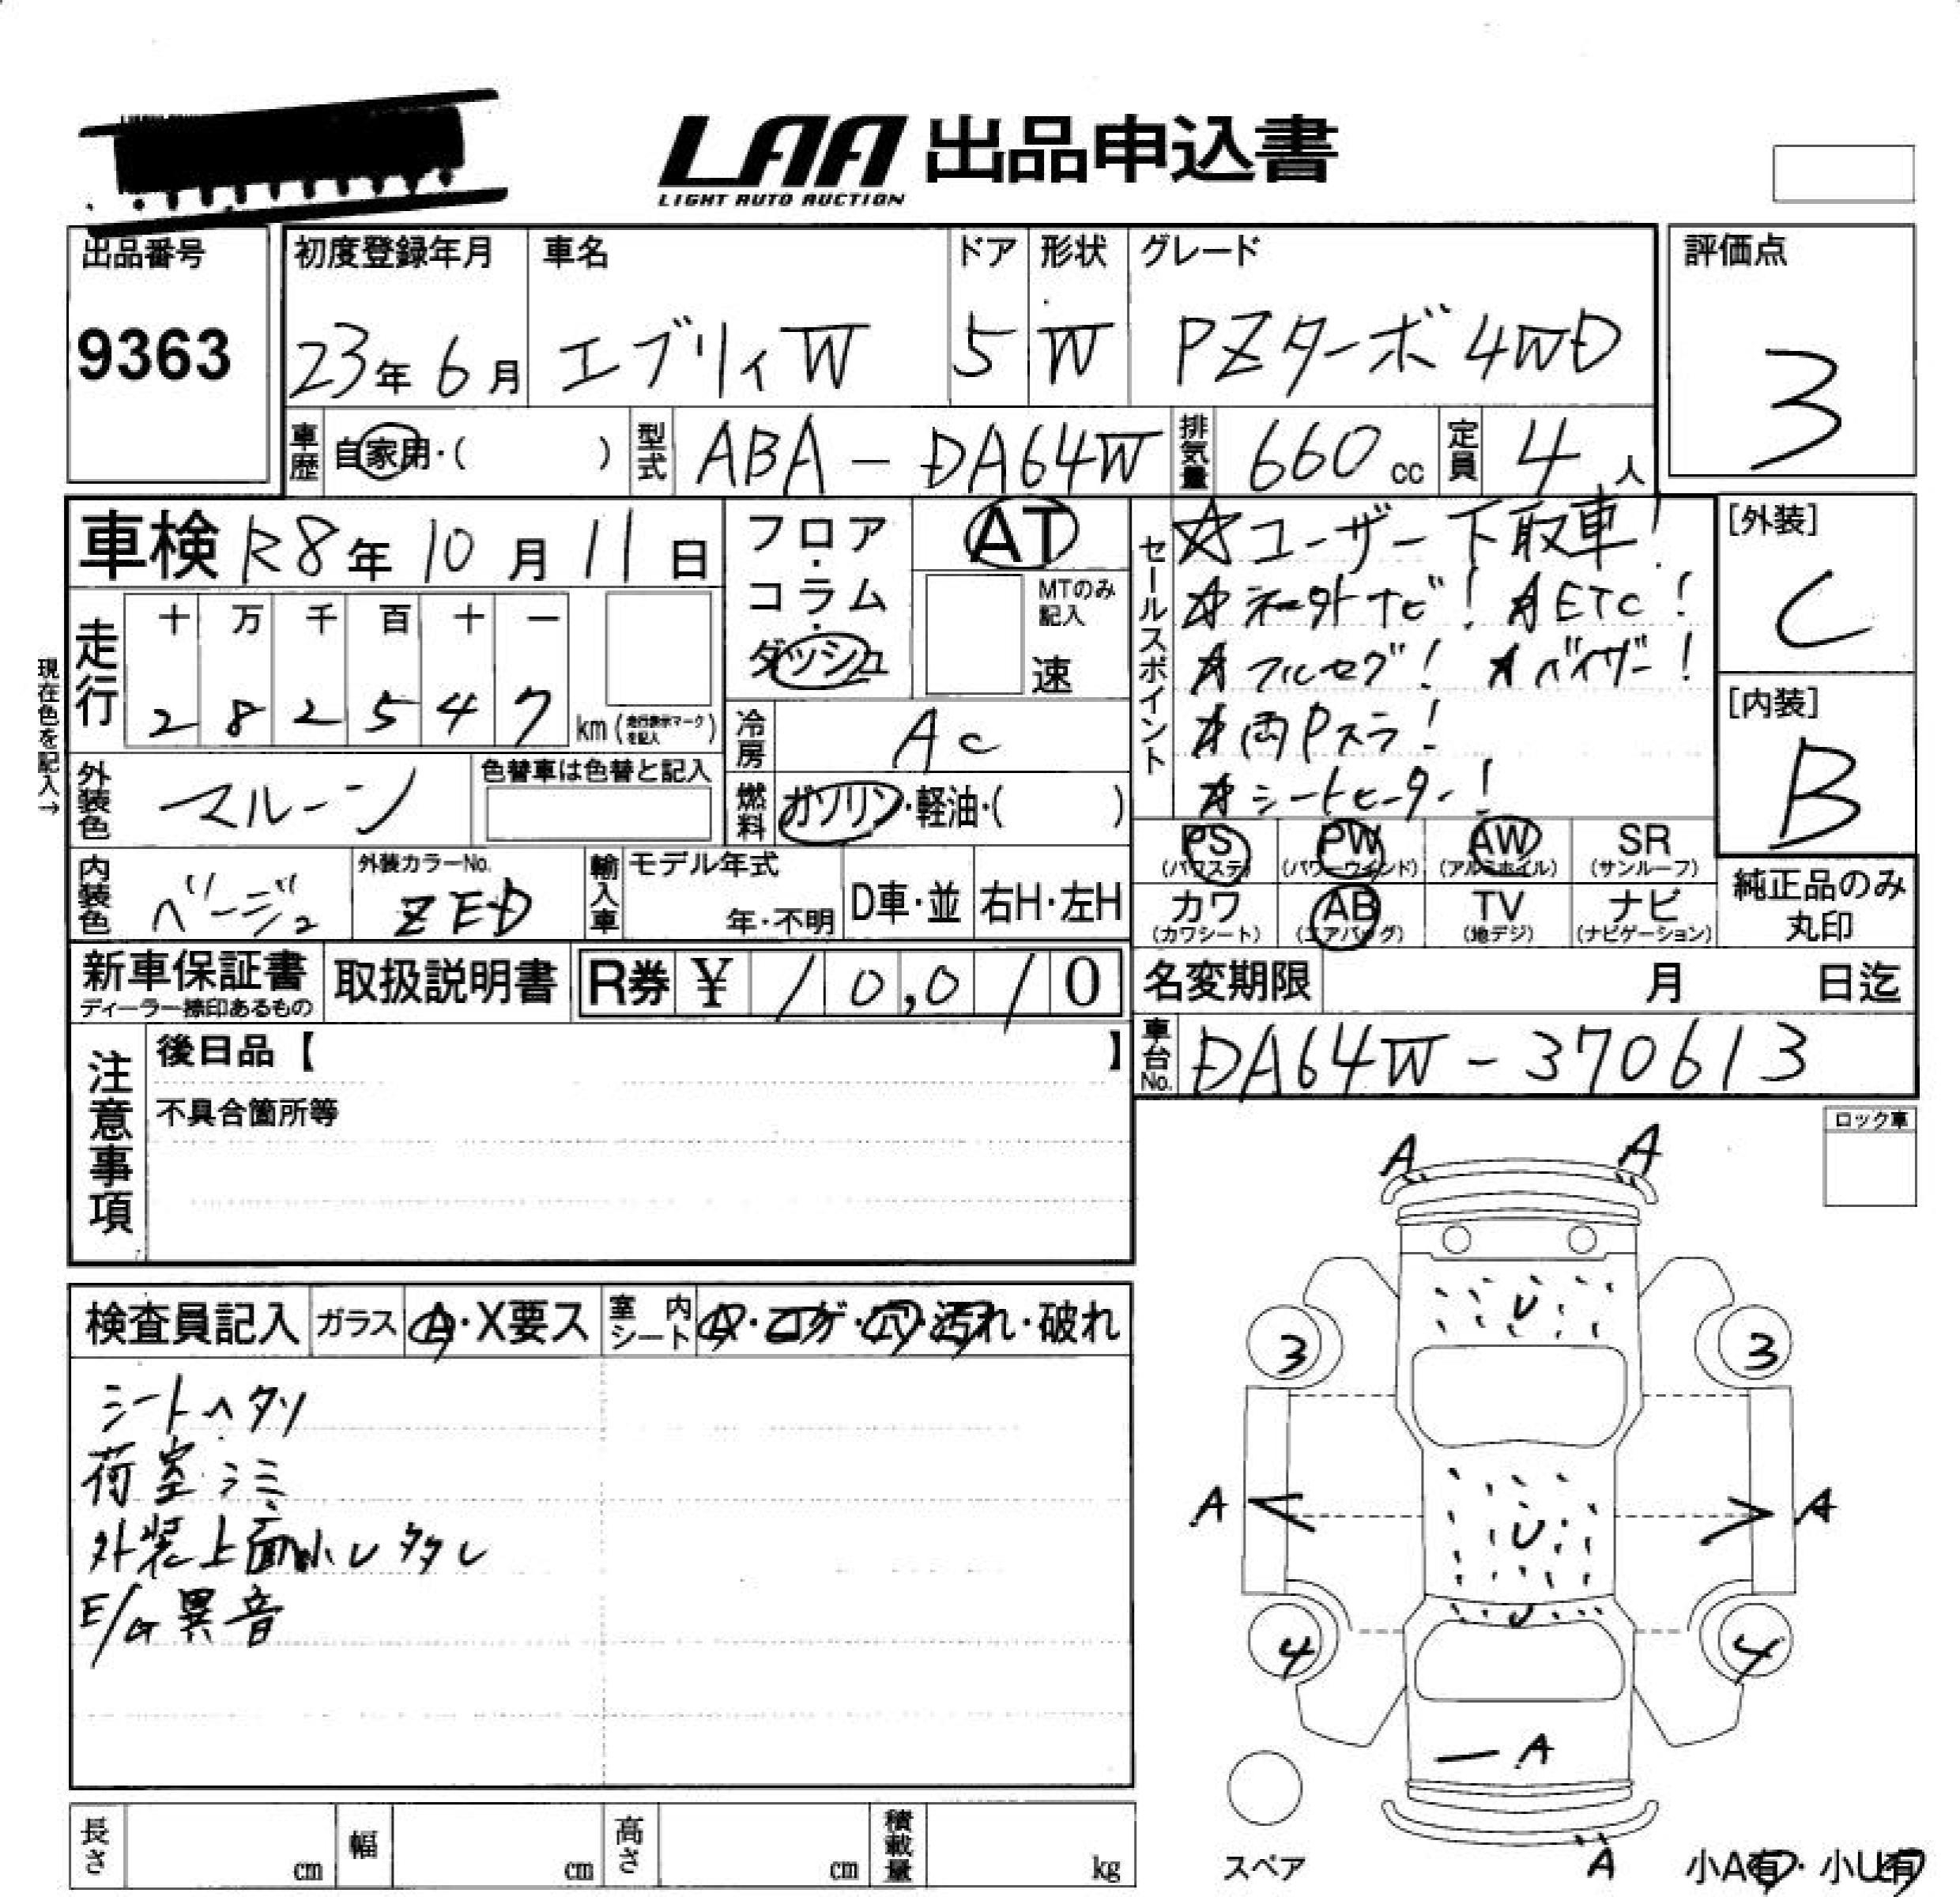 LAA 出品申込書
LIGHT AUTO AUCTION
出品番号
9363
初度登録年月 車名 ドア 形状 グレード
23年6月 エブリィW 5 W PZターボ 4WD
評価点
3
車歴 自家用・( ) 型式 ABA-DA64W 排気量 660cc 定員 4人
車検 R8年10月11日
フロア・コラム・ダッシュ
AT
MTのみ記入
速
セールスポイント
☆ユーザー下取車!
☆社外ナビ! ☆ETC!
☆フルセグ! ☆バイザー!
☆両Pスラ!
☆シートヒーター!
[外装]
C
[内装]
B
現在色を記入→
走行
十 万 千 百 十 一
2 8 2 5 4 7 km (走行表示マークを記入)
冷房 AC
外装色 マルーン 色替車は色替と記入
燃料 ガソリン・軽油・( )
内装色 ベージュ 外装カラーNo. ZED
輸入車 モデル年式 年・不明 D車・並 右H・左H
PS (パワステ) PW (パワーウインド) AW (アルミホイル) SR (サンルーフ)
カワ (カワシート) AB (エアバッグ) TV (地デジ) ナビ (ナビゲーション)
純正品のみ丸印
新車保証書 ディーラー捺印あるもの 取扱説明書 R券 ¥ 10,010
名変期限 月 日迄
車台No. DA64W-370613
注意事項
後日品【 】
不具合箇所等
ロック車
検査員記入 ガラス A・X要ス 室内シート A・コゲ・穴・汚れ・破れ
シートヘタリ
荷室シミ
外装上面小U多タし
E/G異音
A A
U
3 3
A U A
U
4 4
A
スペア A 小A有・小U有
長さ cm 幅 cm 高さ cm 積載量 kg